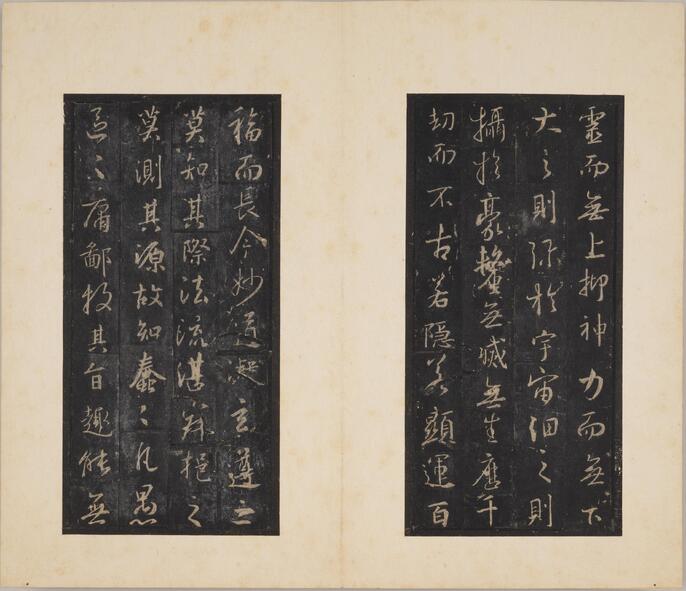 靈而無上抑神力而無下
大之則弥於宇宙細之則
攝於豪釐無滅無生歷千
劫而不古若隱若顯運百
福而長今妙道凝玄遵之
莫知其際法流湛寂挹之
莫測其源故知蠢〻凡愚
區〻庸鄙投其旨趣能無